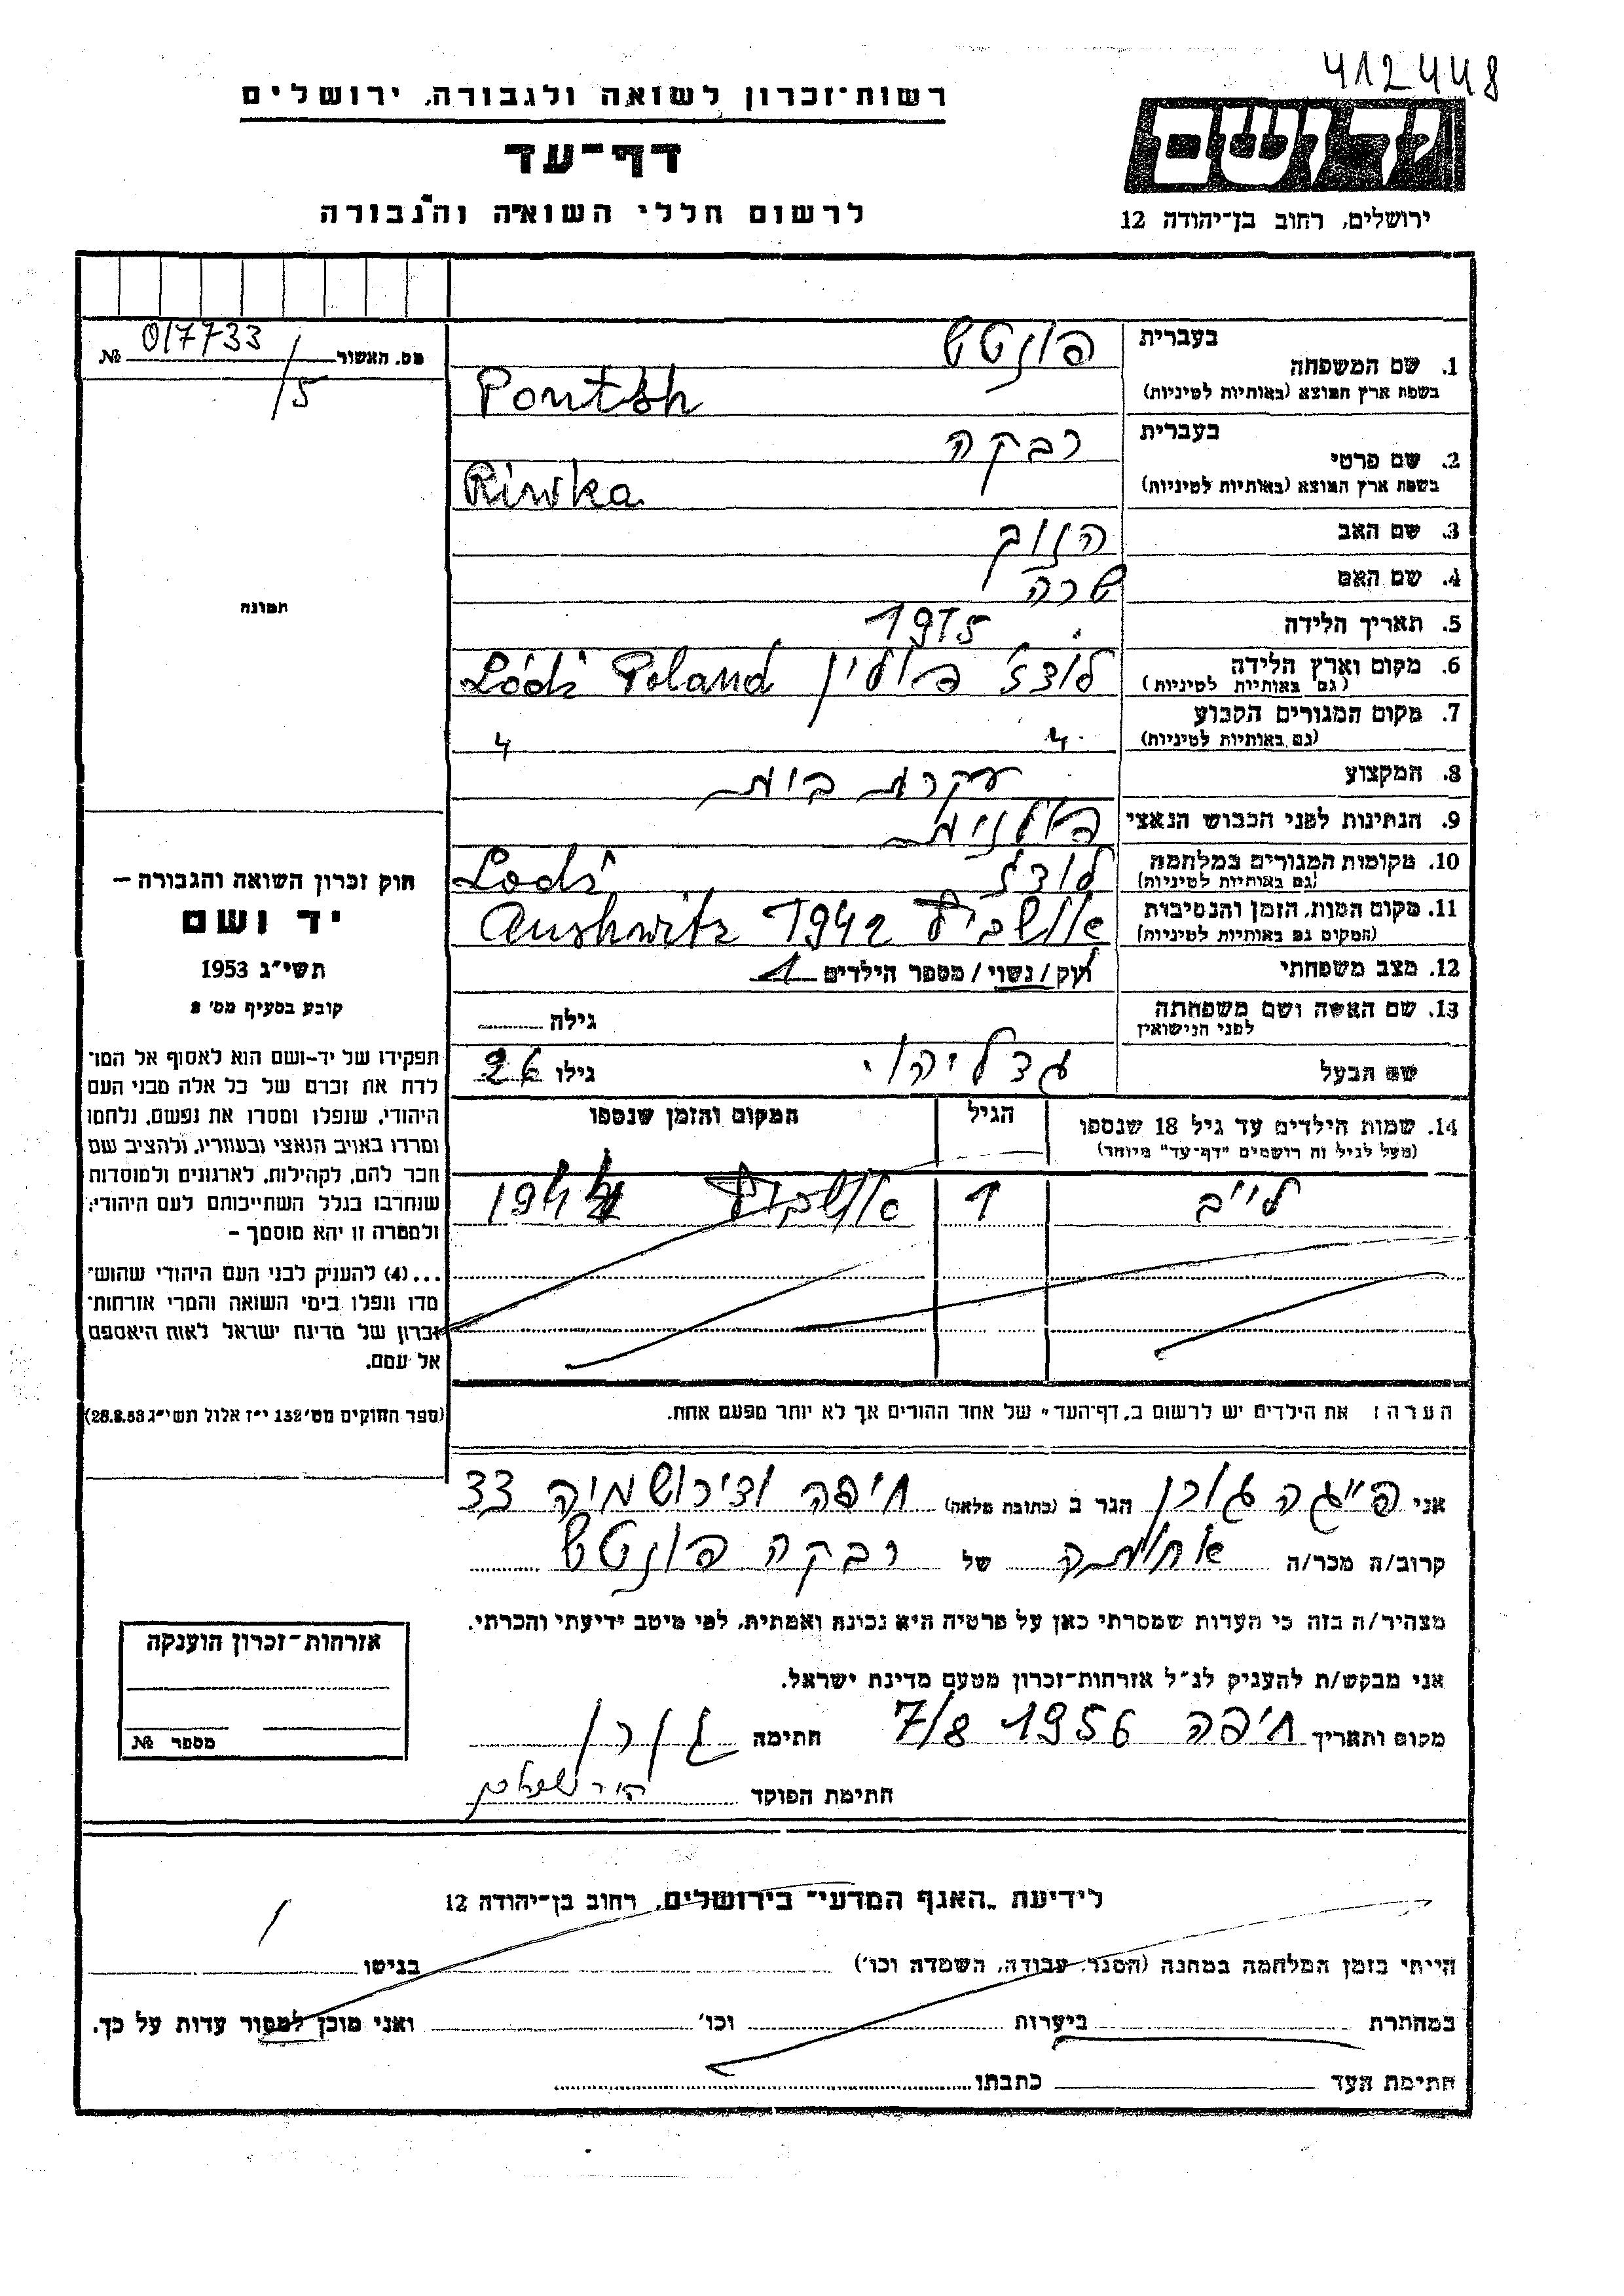 412448
רשות־זכרון לשואה ולגבורה, ירושלים
דף־עד
לרשום חללי השואה והגבורה
יד ושם
ירושלים, רחוב בן־יהודה 12
מס. האשור 017733 №
/5
תמונה
חוק זכרון השואה והגבורה –
יד ושם
תשי״ג 1953
קובע בסעיף מס׳ 2
תפקידו של יד-ושם הוא לאסוף אל המו־
לדת את זכרם של כל אלה מבני העם
היהודי, שנפלו ומסרו את נפשם, נלחמו
ומרדו באויב הנאצי ובעוזריו, ולהציב שם
וזכר להם, לקהילות, לארגונים ולמוסדות
שנחרבו בגלל השתייכותם לעם היהודי;
ולמטרה זו יהא מוסמך –
...(4) להעניק לבני העם היהודי שהוש־
מדו ונפלו בימי השואה והמרי אזרחות־
זכרון של מדינת ישראל לאות היאספם
אל עמם.
(ספר החוקים מס׳ 132 י״ז אלול תשי״ג 28.8.53)
בעברית
1. שם המשפחה פונטש
בשפת ארץ המוצא (באותיות לטיניות) Pontsh
בעברית
2. שם פרטי רבקה
בשפת ארץ המוצא (באותיות לטיניות) Riwka
3. שם האב
4. שם האם שרה
5. תאריך הלידה 1915
6. מקום וארץ הלידה לודז׳ פולין Lódź Poland
(גם באותיות לטיניות)
7. מקום המגורים הקבוע
(גם באותיות לטיניות)
8. המקצוע עקרת בית
9. הנתינות לפני הכבוש הנאצי פולנית
10. מקומות המגורים במלחמה לודז Lodź
(גם באותיות לטיניות)
11. מקום המות, הזמן והנסיבות אושביץ 1942 Aushwitz
(המקום גם באותיות לטיניות)
12. מצב משפחתי רוק/נשוי/ מספר הילדים 1
13. שם האשה ושם משפחתה
לפני הנישואין
גילה
שם הבעל גדליהו גילו 26
14. שמות הילדים עד גיל 18 שנספו הגיל המקום והזמן שנספו
(מעל לגיל זה רושמים "דף־עד" מיוחד)
לייב 1 אושביץ 1942
הערה: את הילדים יש לרשום ב„דף־העד" של אחד ההורים אך לא יותר מפעם אחת.
אני פייגה גורן הגר ב (כתובת מלאה) חיפה ודי רושמיה 33
קרוב/ה מכר/ה אחותה של רבקה פונטש
מצהיר/ה בזה כי העדות שמסרתי כאן על פרטיה היא נכונה ואמתית, לפי מיטב ידיעתי והכרתי.
אני מבקש/ת להעניק לנ״ל אזרחות־זכרון מטעם מדינת ישראל.
מקום ותאריך חיפה 1956 7/8 חתימה גורן
חתימת הפוקד
אזרחות־זכרון הוענקה
מספר №
לידיעת „האגף המדעי" בירושלים, רחוב בן־יהודה 12
הייתי בזמן המלחמה במחנה (הסגר, עבודה, השמדה וכו׳) בגיטו
במחתרת ביערות וכו׳ ואני מוכן למסור עדות על כך.
חתימת העד כתבתו